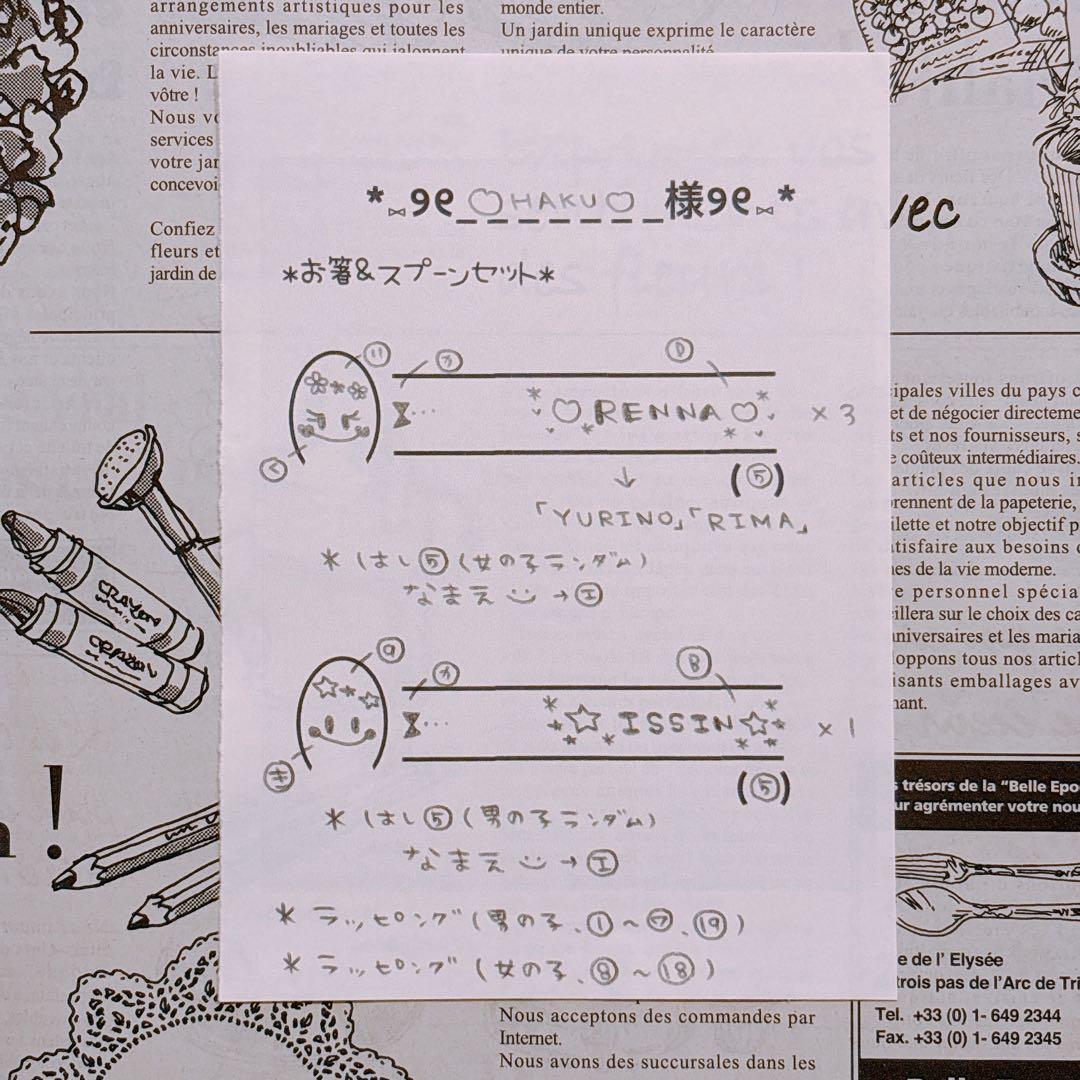 arrangements artistiques pour les
anniversaires, les mariages et toutes les
circonstances inoubliables qui jalonnent
la vie. L
vôtre !
Nous vo
services
votre jar
concevoi
Confiez
fleurs et
jardin de
monde entier.
Un jardin unique exprime le caractère
unique de votre personnalité.
vec
*⑅୨୧_♡HAKU♡_様୨୧⑅*
*お箸&スプーンセット*
♡RENNA♡ × 3
(⑤)
↓
「YURINO」「RIMA」
* はし⑤(女の子ランダム)
なまえ → エ
☆ISSIN☆ × 1
(⑤)
* はし⑤(男の子ランダム)
なまえ → エ
* ラッピング(男の子、①〜⑦、⑲)
* ラッピング(女の子、⑧〜⑱)
CRAYON
CRAYON
!
cipales villes du pays c
et de négocier directeme
ts et nos fournisseurs, s
e coûteux intermédiaires.
articles que nous in
prennent de la papeterie,
ilette et notre objectif p
tisfaire aux besoins d
nes de la vie moderne.
re personnel spécia
illera sur le choix des ca
nniversaires et les maria
loppons tous nos articl
isants emballages av
nant.
s trésors de la “Belle Epo
ur agrémenter votre nou
e de l’ Elysée
trois pas de l’Arc de Tri
Tel. +33 (0) 1- 649 2344
Fax. +33 (0) 1- 649 2345
Nous acceptons des commandes par
Internet.
Nous avons des succursales dans les